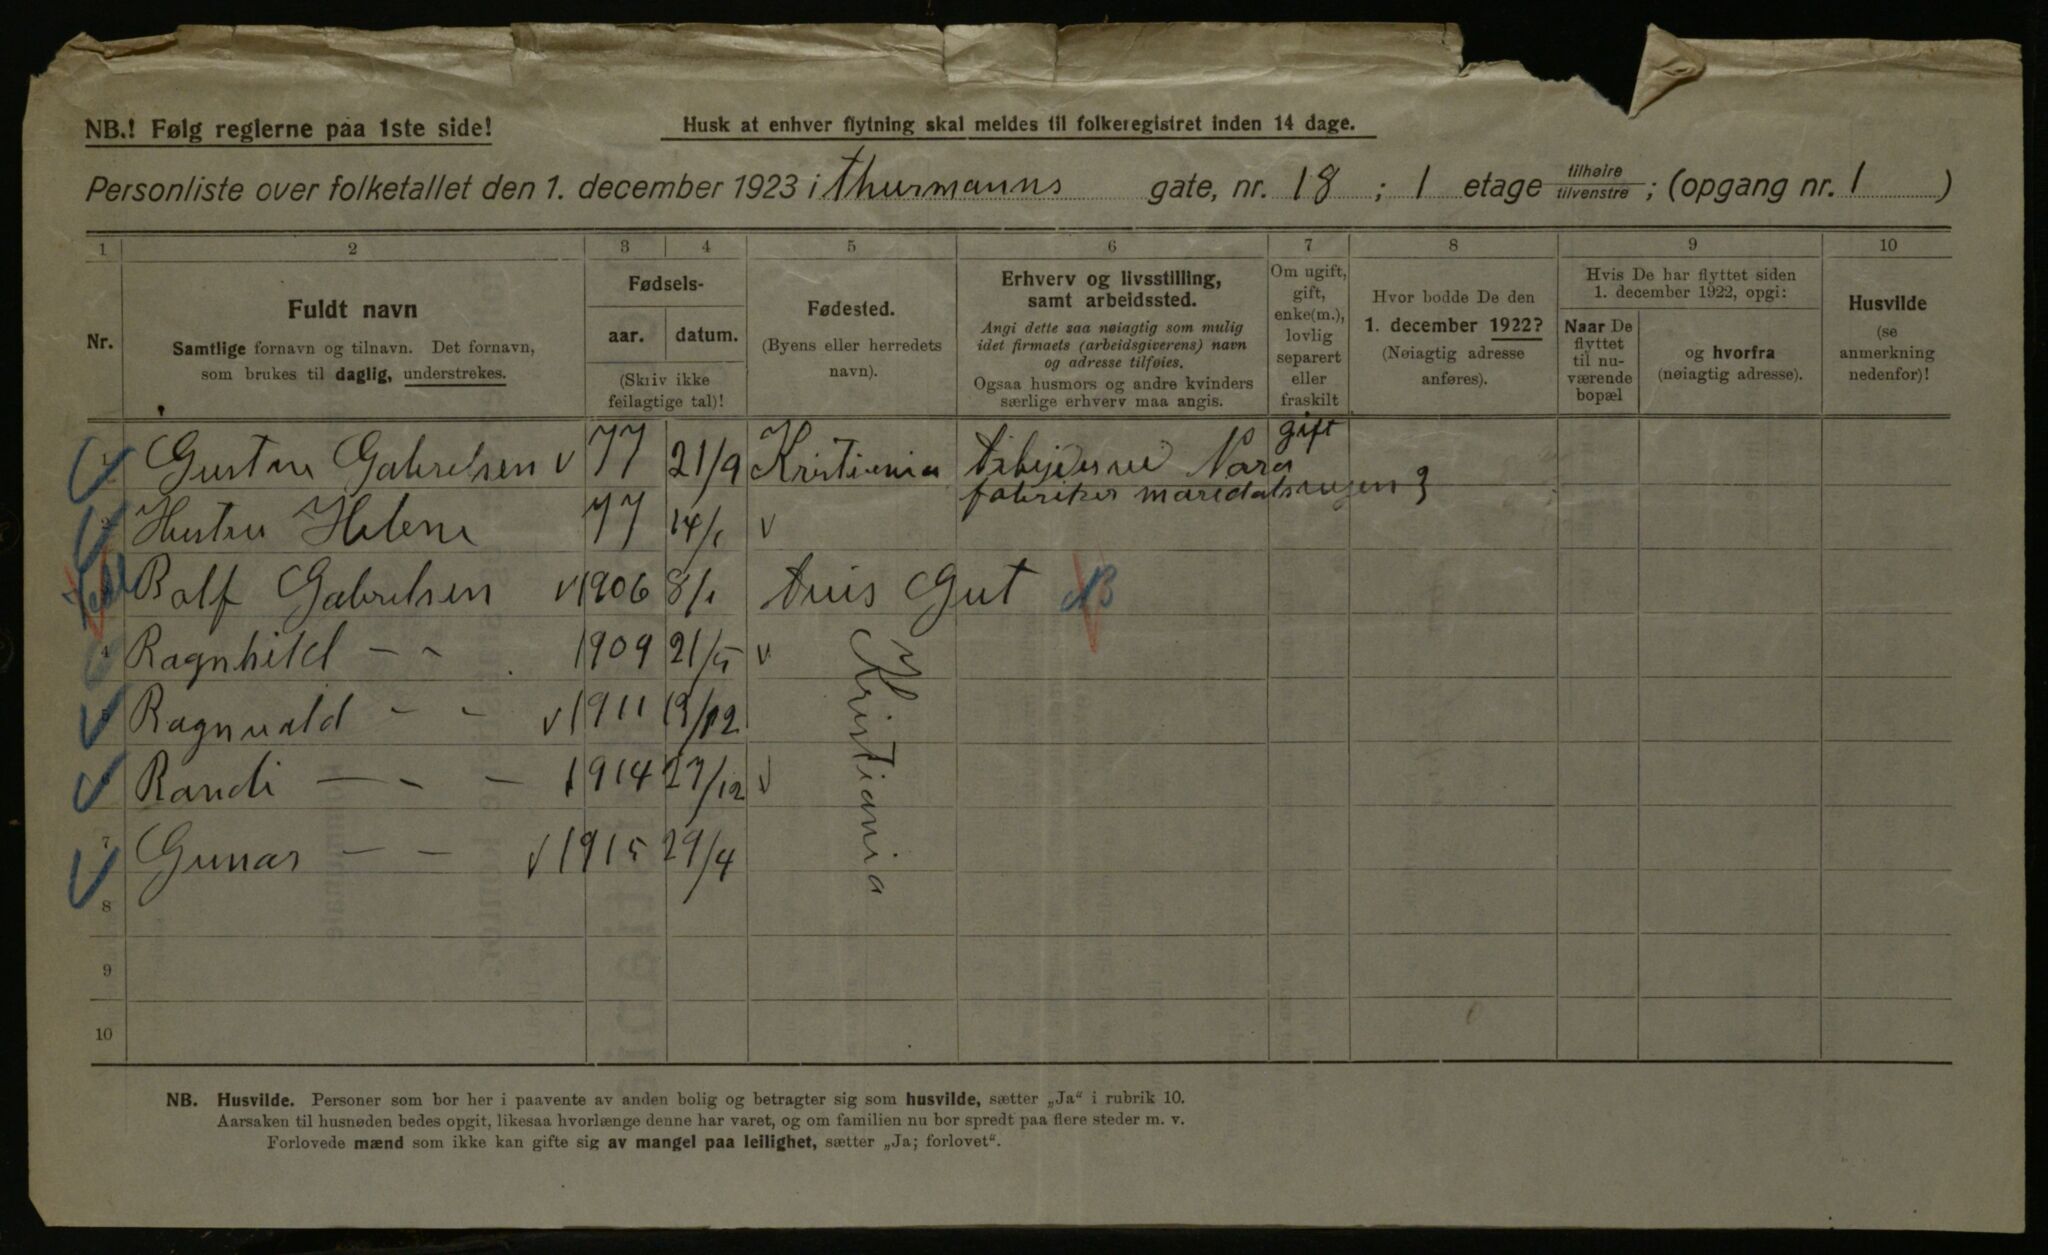 NB.! Følg reglerne paa 1ste side!
Husk at enhver flytning skal meldes til folkeregistret inden 14 dage.
Personliste over folketallet den 1. december 1923 i Thurmanns gate, nr. 18 ; 1 etage tilhøire tilvenstre ; (opgang nr. 1 )
1 2 3 4 5 6 7 8 9 10
Nr.
Fuldt navn
Samtlige fornavn og tilnavn. Det fornavn,
som brukes til daglig, understrekes.
Fødsels-
aar. datum.
(Skriv ikke
feilagtige tal)!
Fødested.
(Byens eller herredets
navn).
Erhverv og livsstilling,
samt arbeidssted.
Angi dette saa nøiagtig som mulig
idet firmaets (arbeidsgiverens) navn
og adresse tilføies.
Ogsaa husmors og andre kvinders
særlige erhverv maa angis.
Om ugift,
gift,
enke(m.),
lovlig
separert
eller
fraskilt
Hvor bodde De den
1. december 1922?
(Nøiagtig adresse
anføres).
Hvis De har flyttet siden
1. december 1922, opgi:
Naar De
flyttet
til nu-
værende
bopæl
og hvorfra
(nøiagtig adresse).
Husvilde
(se
anmerkning
nedenfor)!
Gabrielsen v 77 21/9 Kristiania gift
fabriker maridalsveien 3
Hustru Helene 77 14/1 v
Rolf Gabrielsen v 1906 8/1 Gut
4 Ragnhild - - 1909 21/5 v
5 Ragnvald - - v 1911 13/12
6 Randi - - - 1914 27/12 v
7 Gunar - - v 1915 29/4
Kristiania
8
9
10
NB. Husvilde. Personer som bor her i paavente av anden bolig og betragter sig som husvilde, sætter „Ja“ i rubrik 10.
Aarsaken til husnøden bedes opgit, likesaa hvorlænge denne har varet, og om familien nu bor spredt paa flere steder m. v.
Forlovede mænd som ikke kan gifte sig av mangel paa leilighet, sætter „Ja; forlovet“.